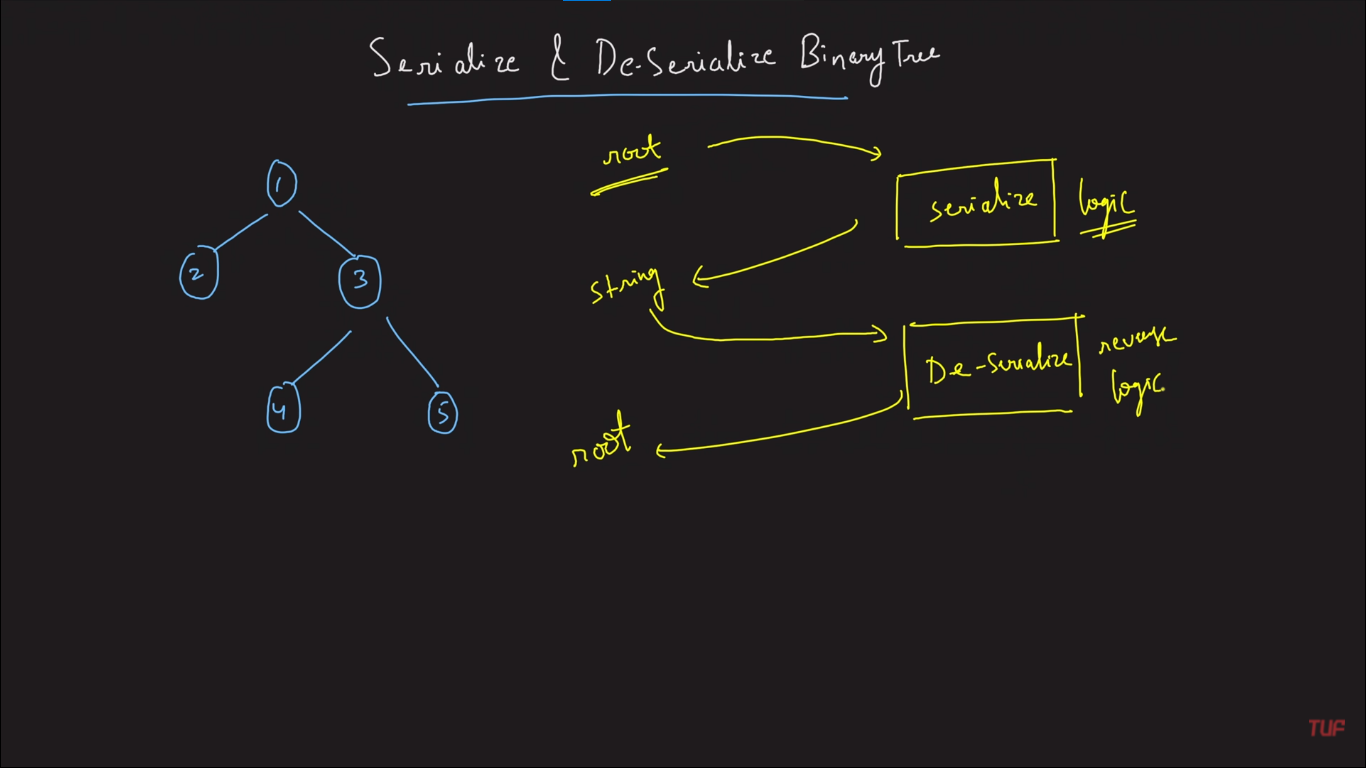 Serialize & De-Serialize Binary Tree
root
serialize
logic
string
De-Serialize
reverse
logic
root
1
2
3
4
5
TUF